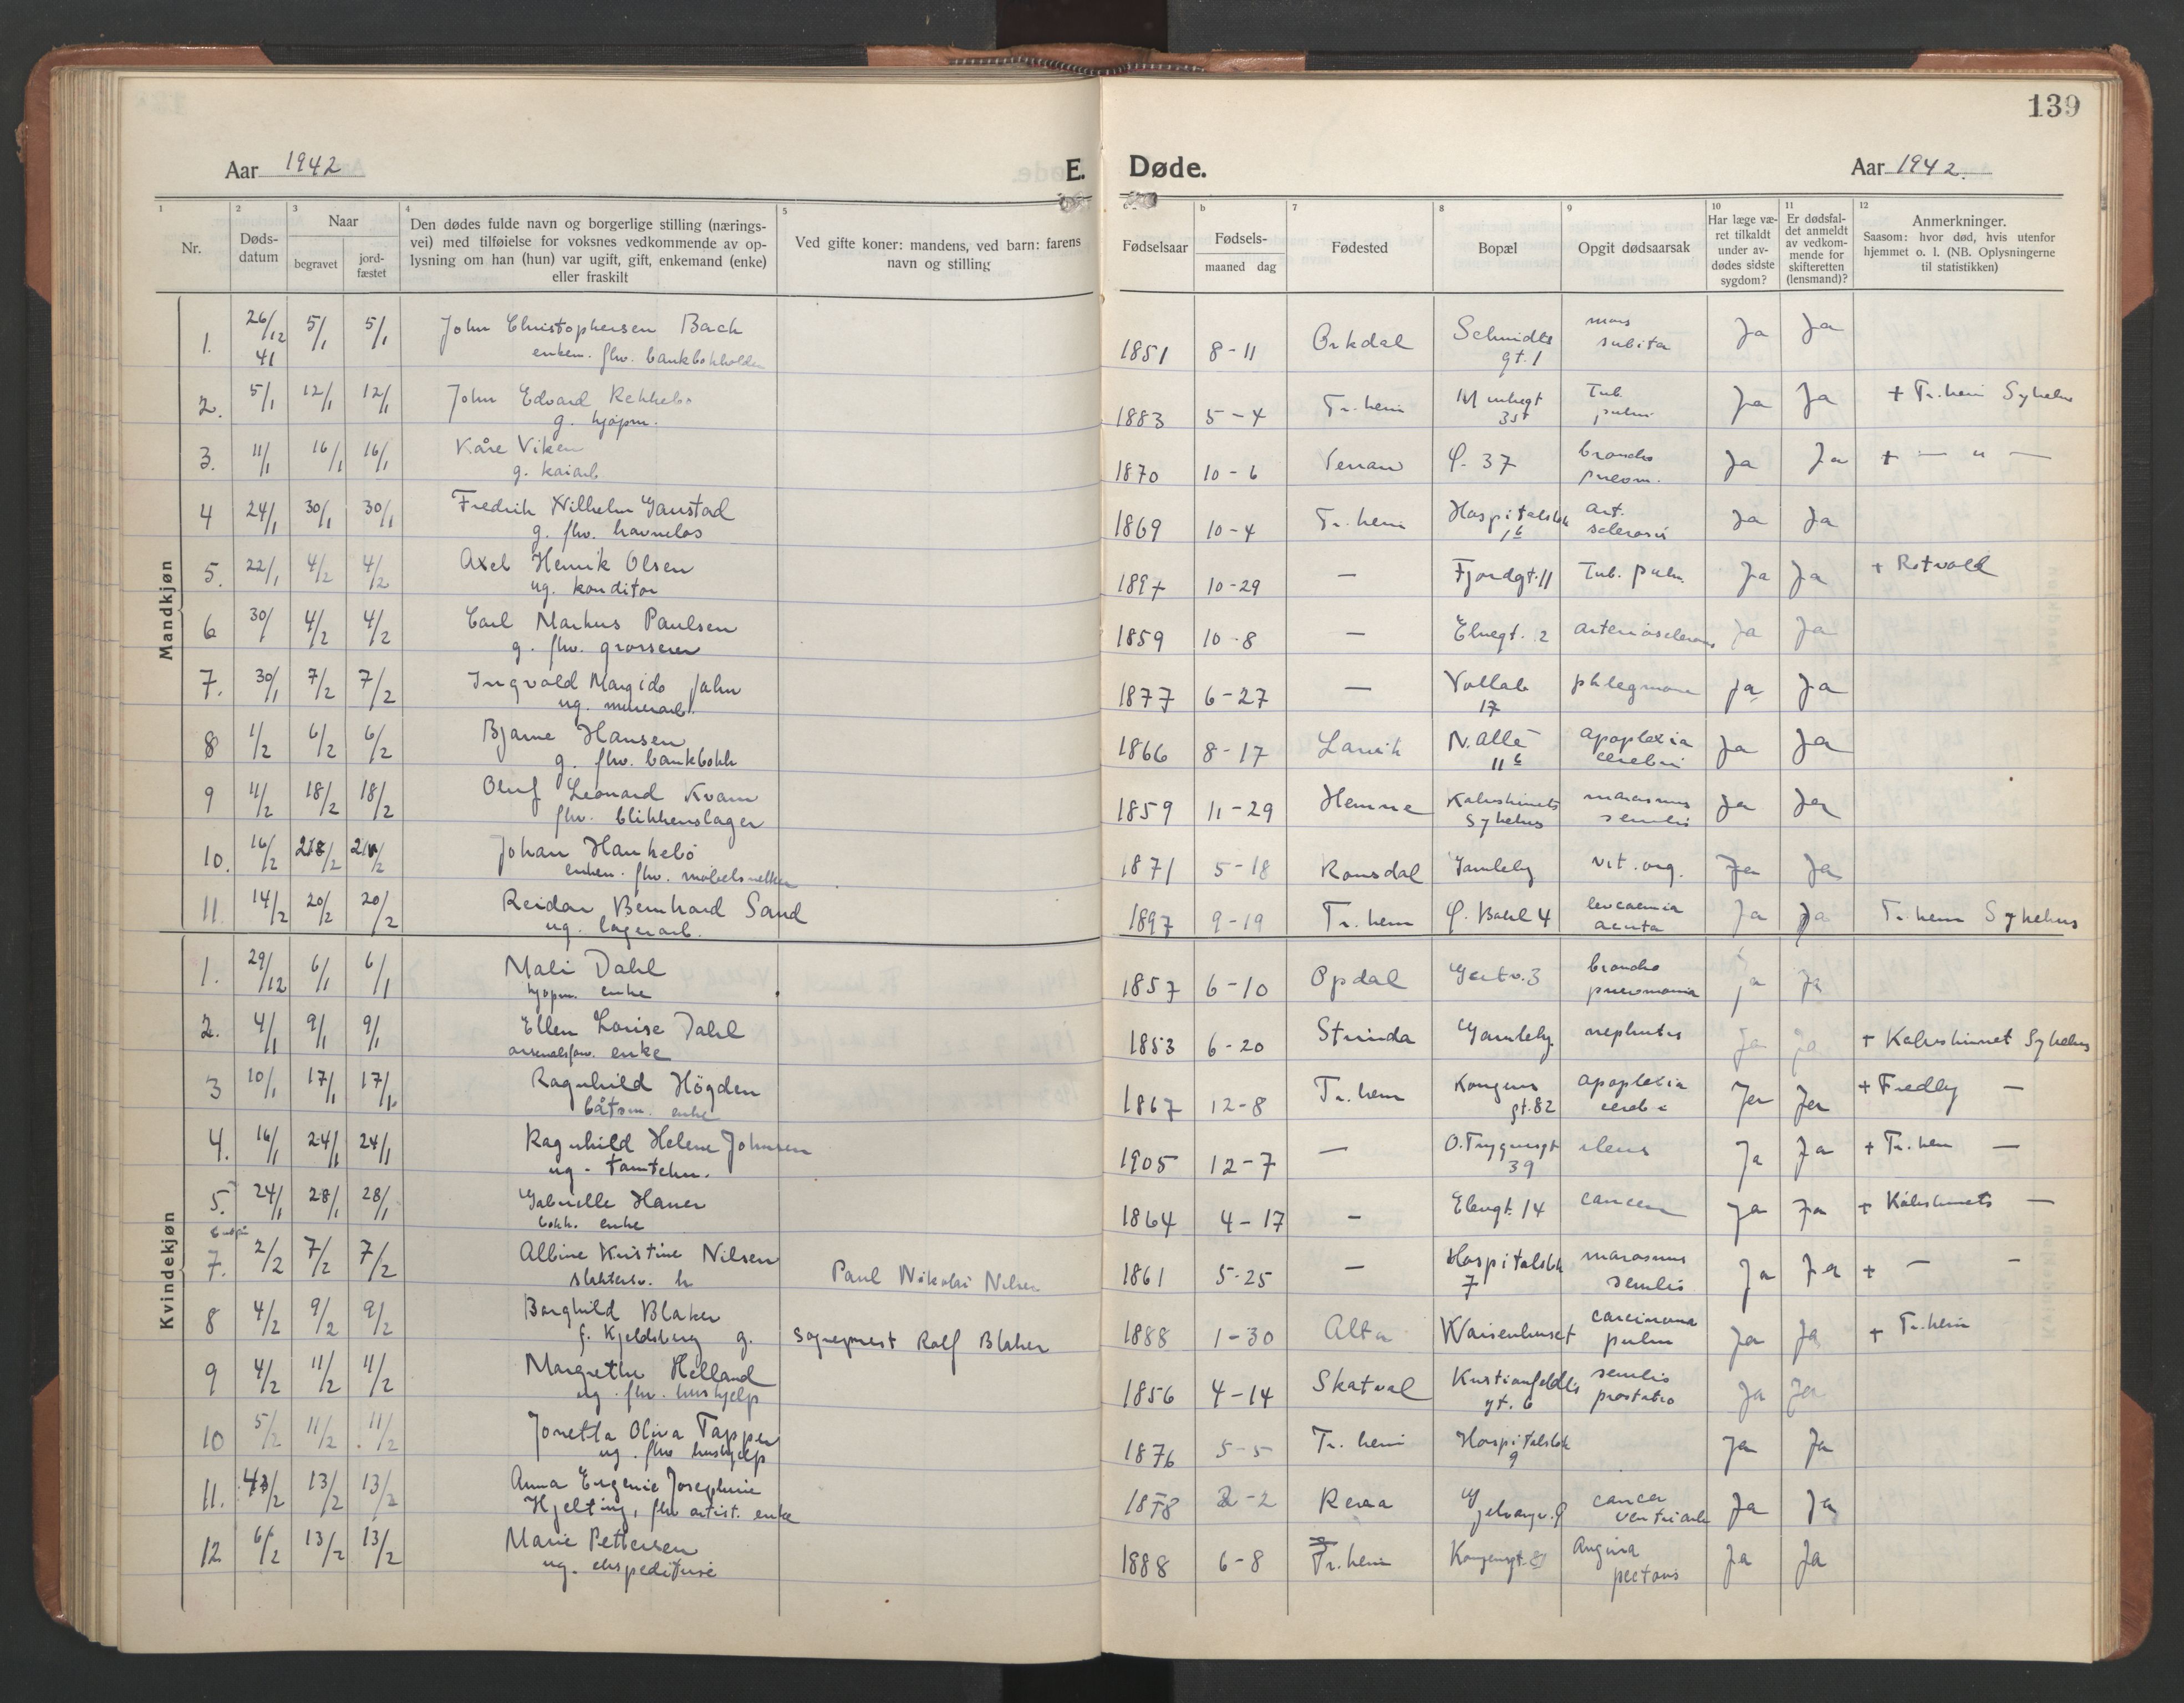 139
Aar 1942 E. Døde. Aar 1942.
1 2 3 4 5 b 7 8 9 10 11 12
Nr.
Døds-
datum
Naar
begravet
jord-
fæstet
Den dødes fulde navn og borgerlige stilling (nærings-
vei) med tilføielse for voksnes vedkommende av op-
lysning om han (hun) var ugift, gift, enkemand (enke)
eller fraskilt
Ved gifte koner: mandens, ved barn: farens
navn og stilling
Fødselsaar
Fødsels-
maaned dag
Fødested
Bopæl
Opgit dødsaarsak
Har læge væ-
ret tilkaldt
under av-
dødes sidste
sygdom?
Er dødsfal-
det anmeldt
av vedkom-
mende for
skifteretten
(lensmand)?
Anmerkninger.
Saasom: hvor død, hvis utenfor
hjemmet o. l. (NB. Oplysningerne
til statistikken)
Mandkjøn
1. 26/12 41 5/1 5/1 John Christophersen Bach 1851 8-11 Orkdal Schmidts mors Ja Ja
enkem. fhv. bankbokholder gt. 1 subita
2. 5/1 12/1 12/1 John Edvard Rekkebo 1883 5-4 Tr.heim Tub. Ja Ja + Tr.heim Sykehus
g. kjøpm. pulm
3. 11/1 16/1 16/1 Kåre Viken 1870 10-6 Verran 37 broncho Ja Ja + — " —
g. kaiarb. pneom.
4 24/1 30/1 30/1 Fredrik Wilhelm Ganstad 1869 10-4 Tr.heim Hospitalsløk art. Ja Ja
g. fhv. havnelos 1b sclerosis
5. 22/1 4/2 4/2 Axel Henrik Olsen 1897 10-29 — Fjordgt. 11 Tub. pulm. Ja Ja + Rotvold
ug. konditor
6 30/ 4/2 4/2 Carl Markus Paulsen 1859 10-8 — Elvegt. 2 arteriosclerosis Ja Ja
g. fhv. grosserer
7. 30/1 7/2 7/2 Ingvald Margido Jahn 1877 6-27 — Vollab phlegmone Ja Ja
ug. murerarb. 17
8 1/2 6/2 6/2 Bjarne Hansen 1866 8-17 Larvik N. allé apoplexia Ja Ja
g. fhv. bankbokh 11b cerebri
9 11/2 18/2 18/2 Oluf Leonard Kvam 1859 11-29 Hemne Kalvskinnets marasmus Ja Ja
fhv. blikkenslager Sykehus senilis
10. 16/2 Johan Haukebø 1871 5-18 Romsdal Gamleby vit. org. Ja Ja
enkem. fhv. møbelsnekker
11. 14/2 20/2 20/2 Reidar Bernhard Sand 1897 9-19 Tr.heim 4 leucaemia Ja Ja Tr.heim Sykehus
ug. lagerarb. acuta
Kvindekjøn
1. 29/12 6/1 6/1 Mali Dahl 1857 6-10 Opdal 3 broncho Ja Ja
kjøpm. enke pneumonia
2. 4/1 9/1 9/1 Ellen Lovise Dahl 1853 6-20 Strinda Gamleby. nephritis Ja Ja + Kalvskinnet Sykehus
arsenalsforv. enke
3 10/1 17/1 17/1 Ragnhild Högden 1867 12-8 Tr.heim Kongens apoplexia Ja Ja + Fredly —
båtsm. enke gt. 82 cerebri
4. 16/1 24/1 24/1 Ragnhild Helene Johnsen 1905 12-7 — O. Trygvasgt ileus Ja Ja + Tr.heim —
ug. tanntekn. 39
5. 24/1 28/1 28/1 Gabrielle Haner 1864 4-17 — Elvegt. 14 cancer Ja Ja + Kalvskinnets —
bokh. enke
7. 2/2 7/2 7/2 Albine Kristine Nilsen Paul Nikolai Nilsen 1861 5-25 — Hospitalsløk marasmus Ja Ja + — —
7 senilis
8 4/2 9/2 9/2 Borghild Blaker 1888 1-30 Alta Waisenhuset carcinoma Ja Ja + Tr.heim
f. Kjeldsberg g. sogneprest Rolf Blaker pulm
9 4/2 11/2 11/2 Margrethe Helland 1856 4-14 Skatval Kristianfeldts senilis Ja Ja
ug. fhv. hushjelp gt. 6 prostatio
10 5/2 11/2 11/2 Jonetta Oliva Tapper 1876 5-5 Tr.heim Hospitalsløk Ja Ja
ug. fhv hushjelp 9
11. 13/2 13/2 Anna Eugenie Josephine 2-2 cancer Ja Ja
Hjelting, fhv artist. enke
12 6/2 13/2 13/2 Marie Pettersen 1888 6-8 Tr.heim Kongensgt. Angina Ja Ja
ug. ekspeditrise pectoris